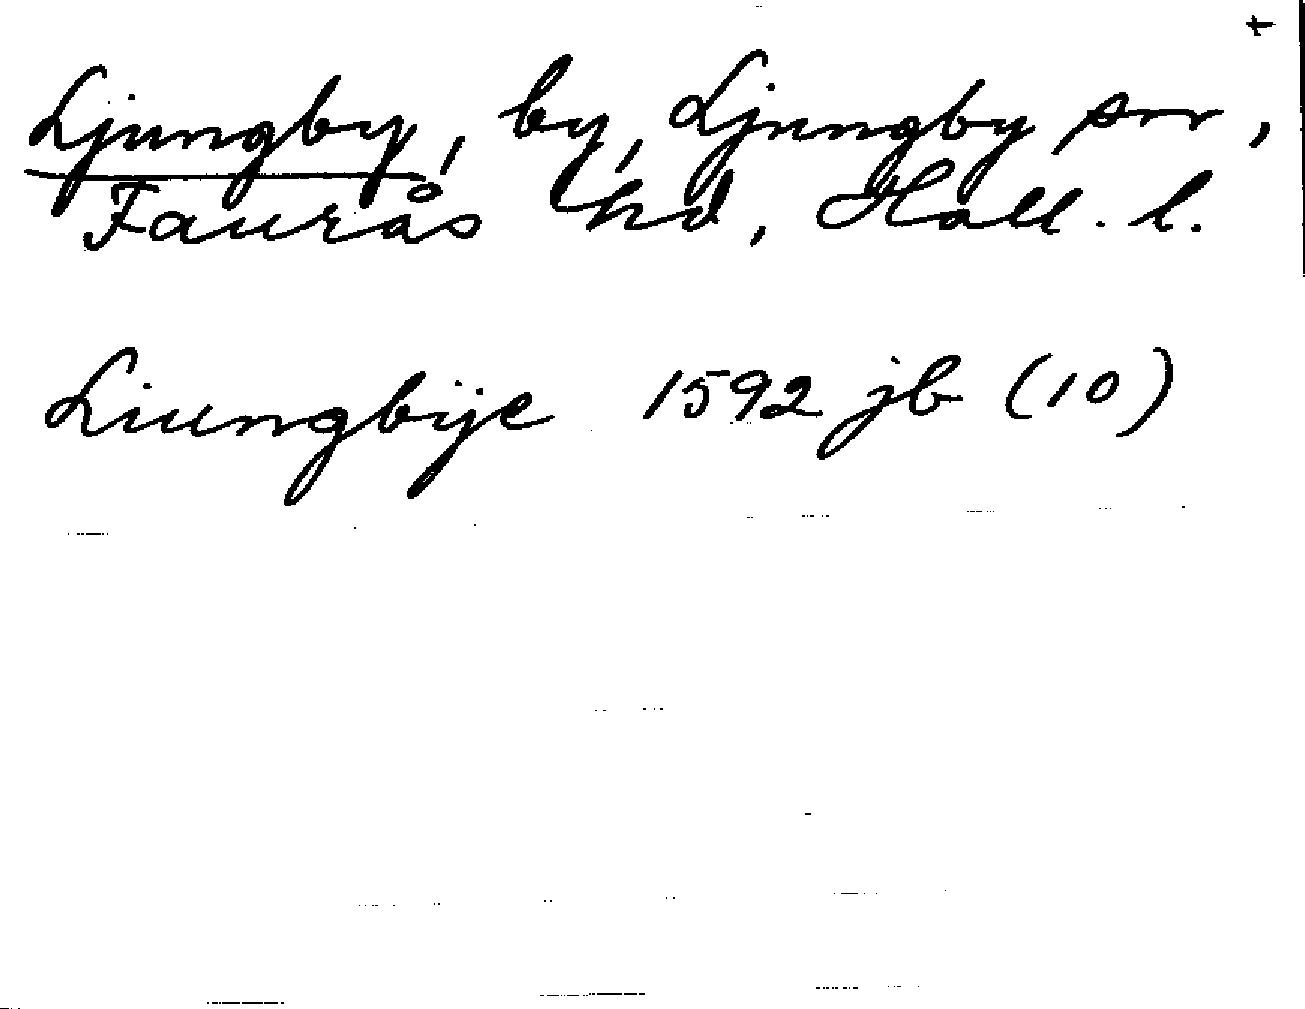 Ljungby, by, Ljungby snr,
Faurås hd, Hall. l.
Liungbije 1592 jb (10)